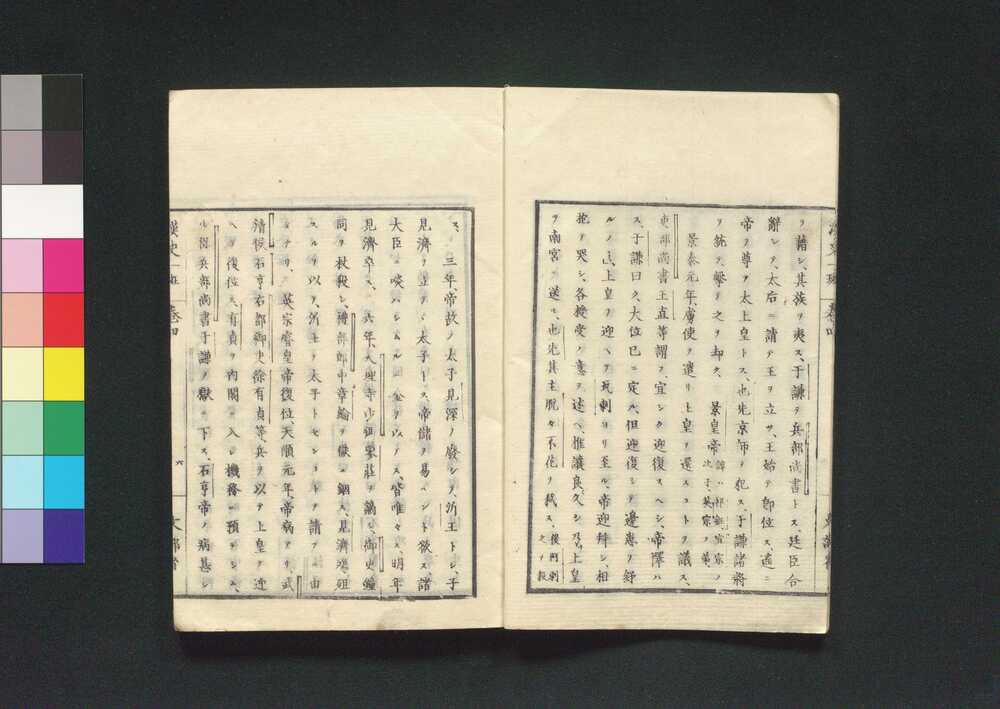 ヲ籍シ、其族ヲ夷ス、于謙ヲ兵部尚書トス、廷臣合
辭シテ、太后ニ請テ王ヲ立ツ、王始テ即位ス、遙ニ
帝ヲ尊テ太上皇トス、也先京師ヲ犯ス、于謙諸將
ヲ統テ撃テ之ヲ却ク、 景皇帝 諱ハ祁鈺宣宗ノ
次子、英宗ノ弟、
景泰元年、虜使ヲ遣リ上皇ヲ還スコトヲ議ス、
吏部尚書王直等謂フ、宜シク迎復スヘシ、帝懌ハ
ス、于謙曰ク、大位已ニ定ル、但迎復シテ邊患ヲ紓
ル上皇ヲ迎ヘテ至ル、帝迎拜シ、相
抱テ哭シ、各授受ノ意ヲ述ヘ、推讓良久シ、乃上皇
ヲ南宮ニ送ル、也先其主脱々不花ヲ弑ス、
之ヲ殺
ス、 三年、帝故ノ太子見深ヲ廢シテ、沂王トシ、子
見濟ヲ立テ太子トス、帝儲ヲ易ヘント欲ス、諸
大臣ニ啖ハシムルニ金ヲ以テス、皆唯々ス、明年
見濟卒ス、 五年、大理寺少卿廖莊ヲ謫シ、御史鍾
同ヲ杖殺シ、禮部郎中章綸ヲ獄ニ錮ス、見濟既ニ殂
スルヲ以テ、沂王ヲ太子トセンコトヲ請フニ由
テナリ、 英宗睿皇帝復位、天順元年、帝病アリ、武
清侯石亨右都御史徐有貞等兵ヲ以テ上皇ヲ迎
ヘテ復位ス、有貞ヲ内閣ニ入レ機務ニ預ラシム、
兵部尚書于謙ヲ獄ニ下ス、石亨帝ノ病甚シ
漢史一班 卷四
六